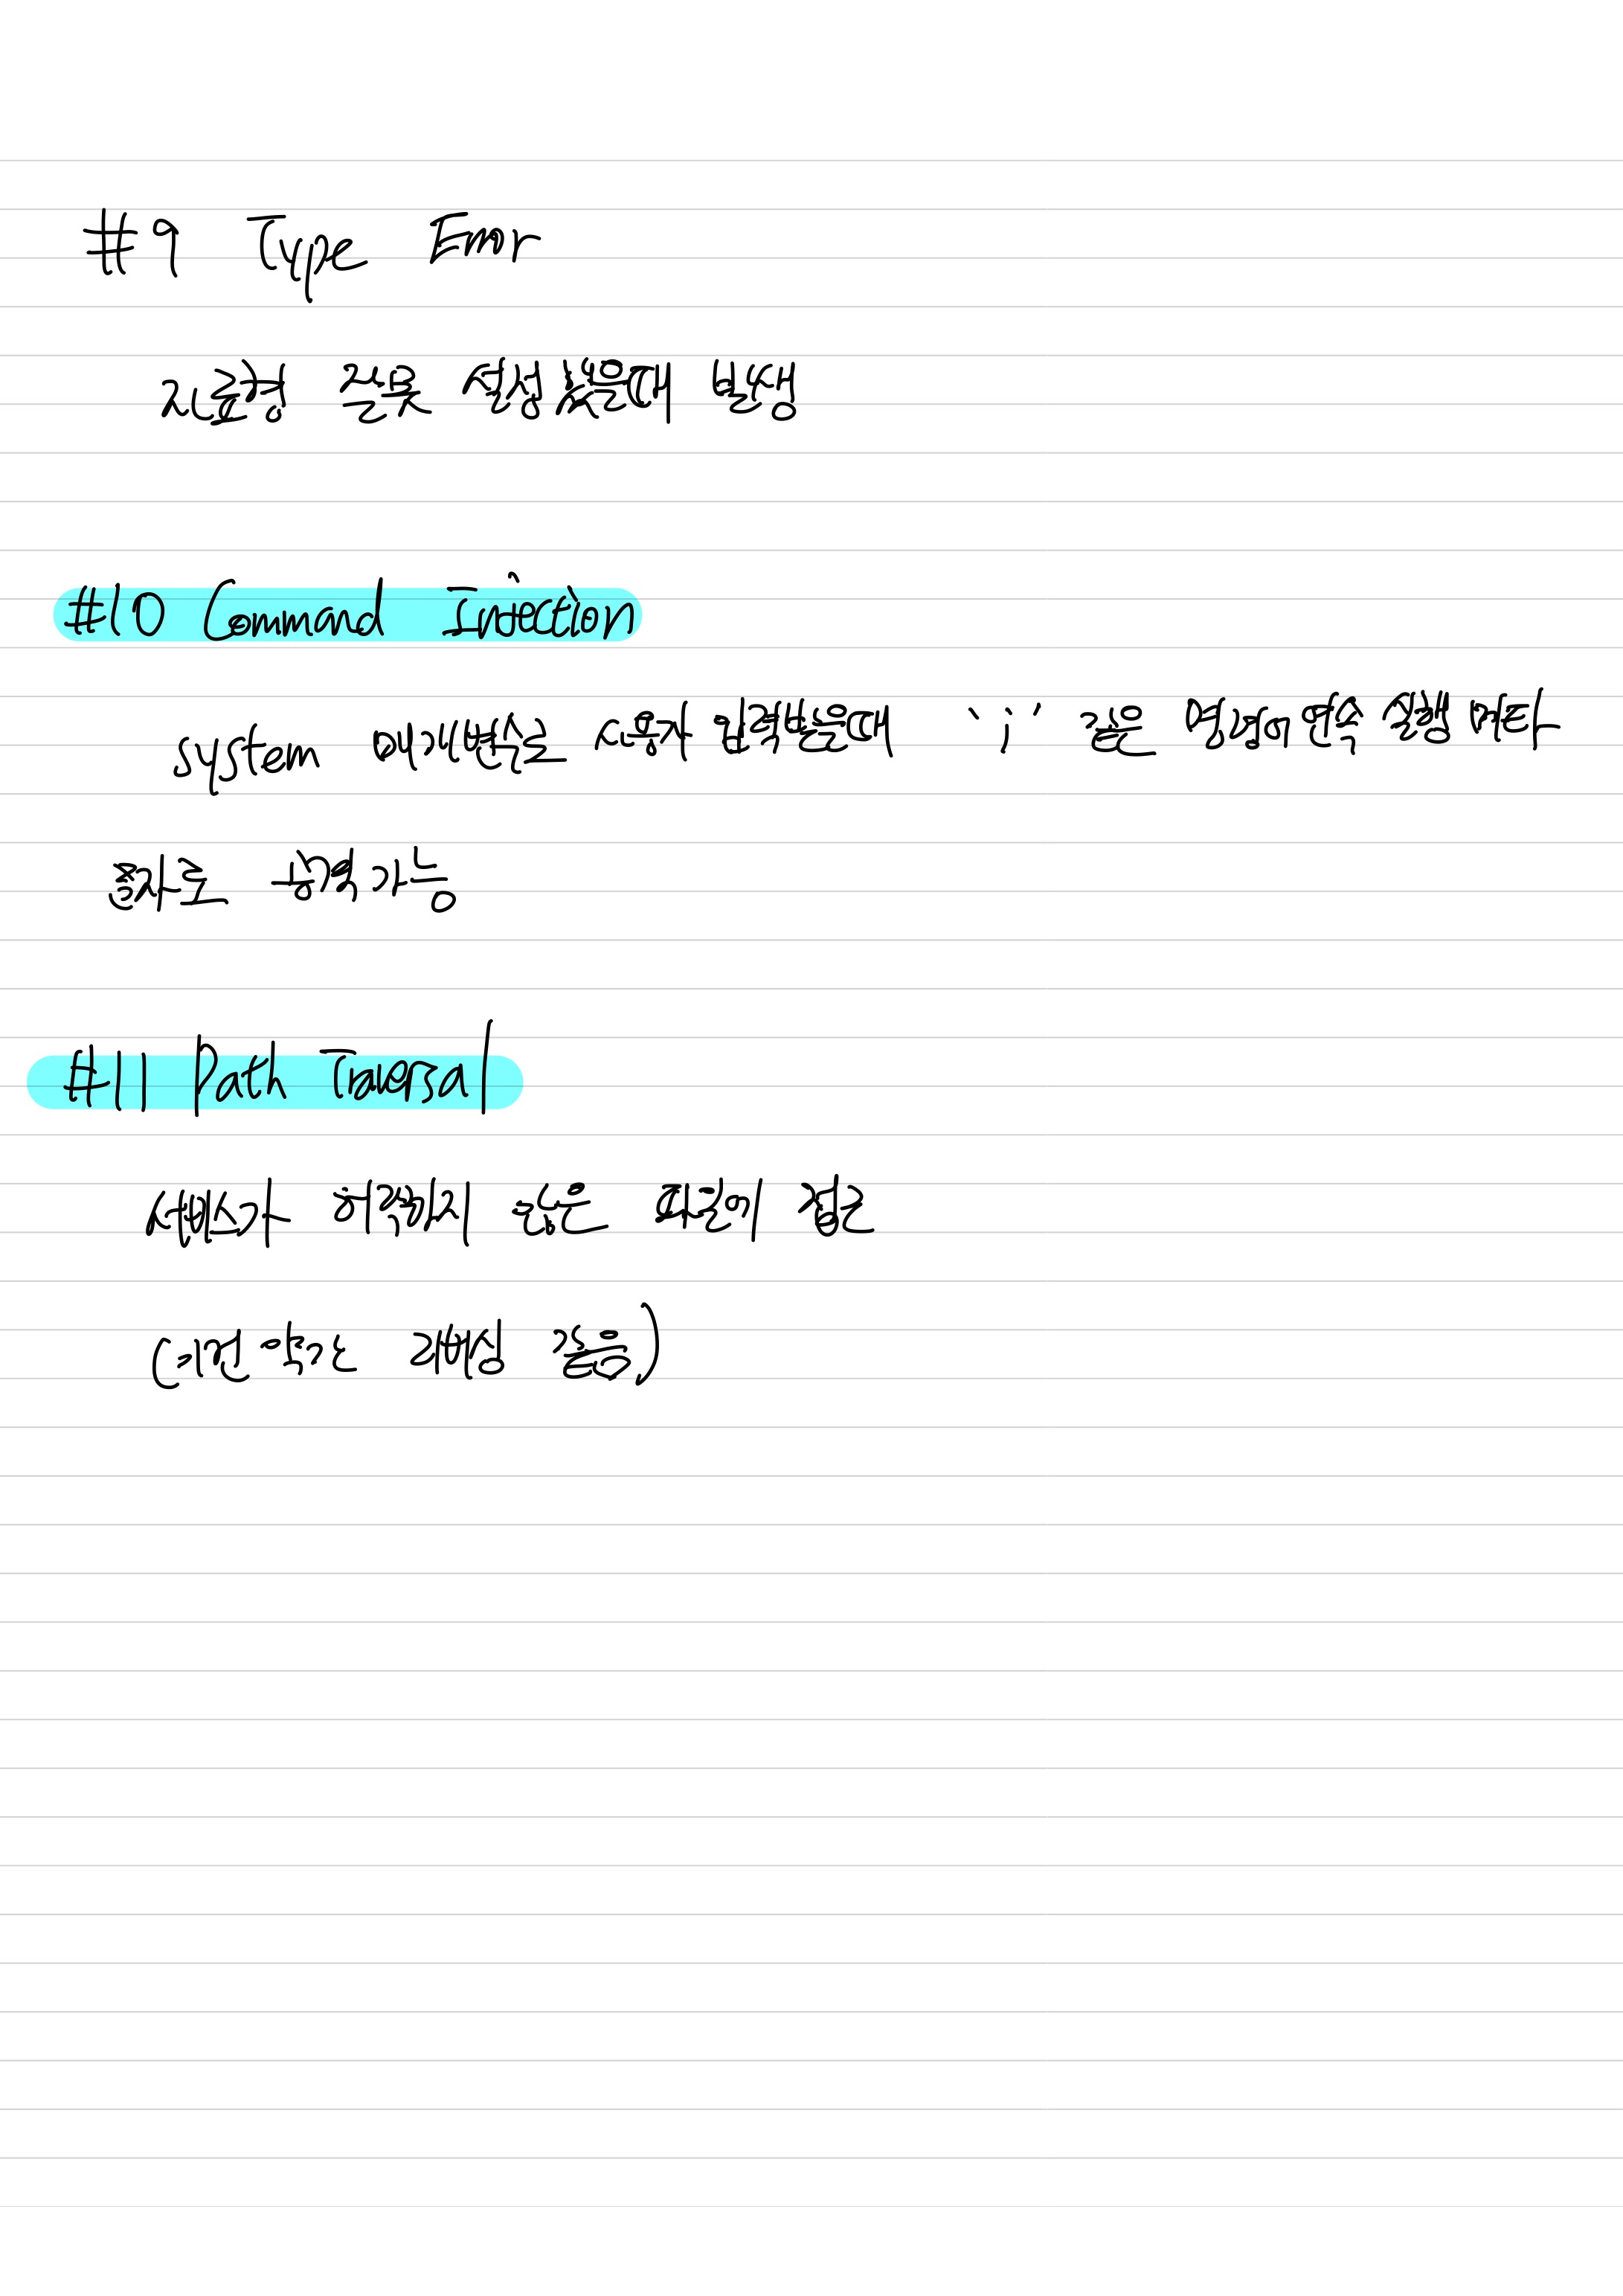 #9 Type Error
자료형 잘못 설정했을때 발생
#10 Command Injection
system 매개변수로 사용자 입력받을때 ';' 같은 명령어 연속 실행 메타
문자로 공격가능
#11 Path Traversal
서비스가 허락하지 않은 파일에 접근
(이건 약간 개념 같음)